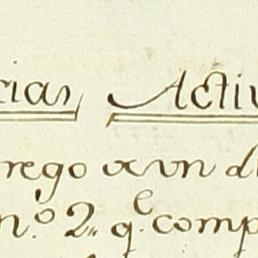 cias, Activ
rego de un d
n.º 2,, q.e comp